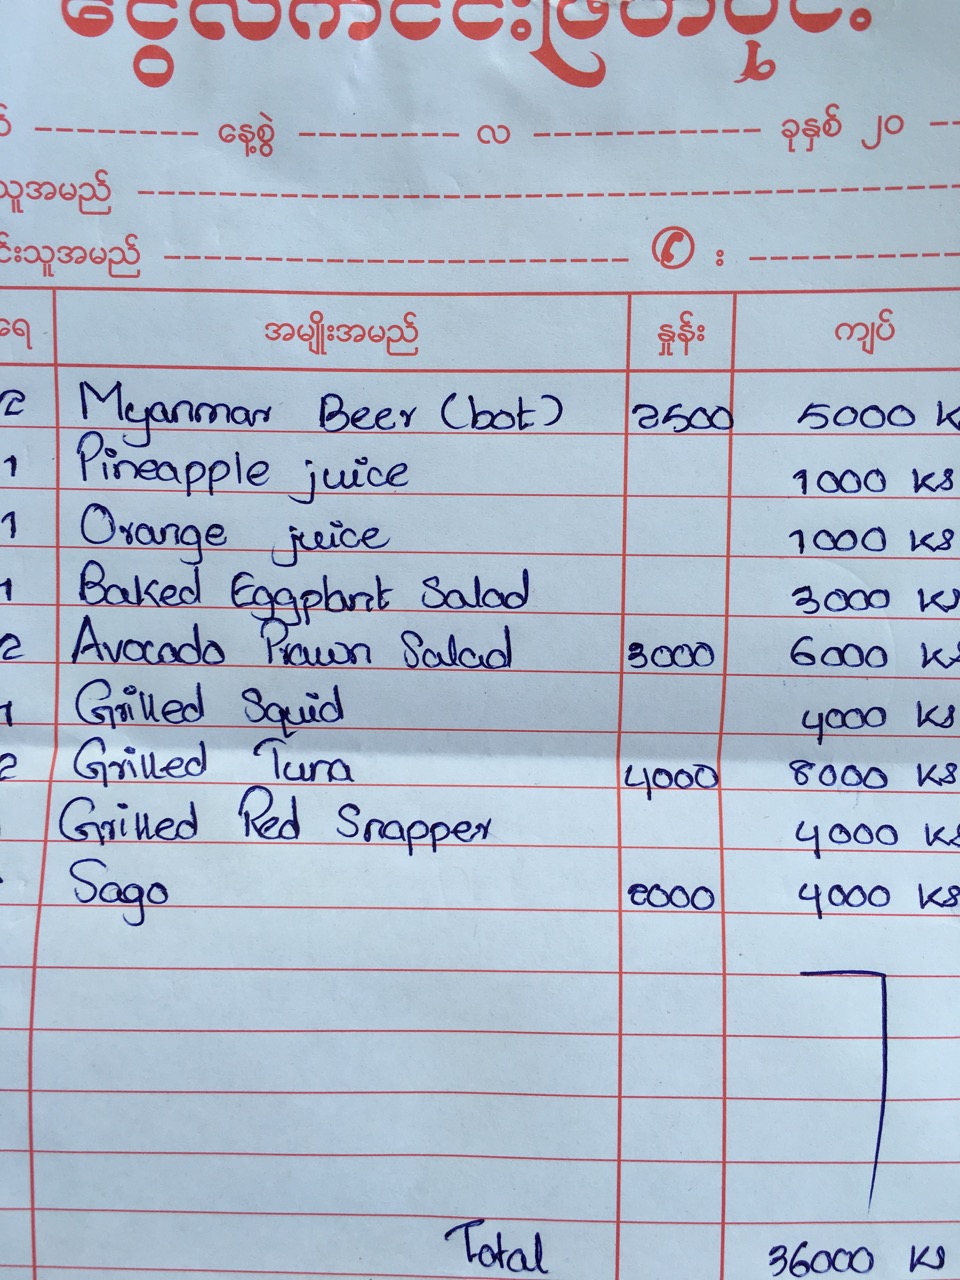 ငွေလက်ခင်းဖြတ်ပိုင်း
နေ့စွဲ လ ခုနှစ် ၂၀
သူအမည်
င်းသူအမည် :
ရေ အမျိုးအမည် နှုန်း ကျပ်
2 Myanmar Beer (bot) 2500 5000 K
1 Pineapple juice 1000 KS
1 Orange juice 1000 KS
1 Baked Eggplant Salad 3000 KS
2 Avocado Prawn Salad 3000 6000 KS
1 Grilled Squid 4000 KS
2 Grilled Tuna 4000 8000 KS
Grilled Red Snapper 4000 KS
Sago 2000 4000 KS
Total 36000 KS